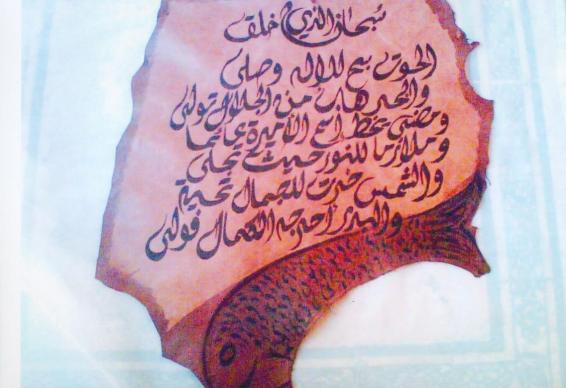 سبحان الذي خلق
الحوت سبح للإله وصلى
والبحر هاب من الجلال وتولى
ومضى يخط اسم الأميرة عائما
وملازما للنور حيث تجلى
والشمس خرت للجمال تحية
والبدر أحرجه الكمال فولى